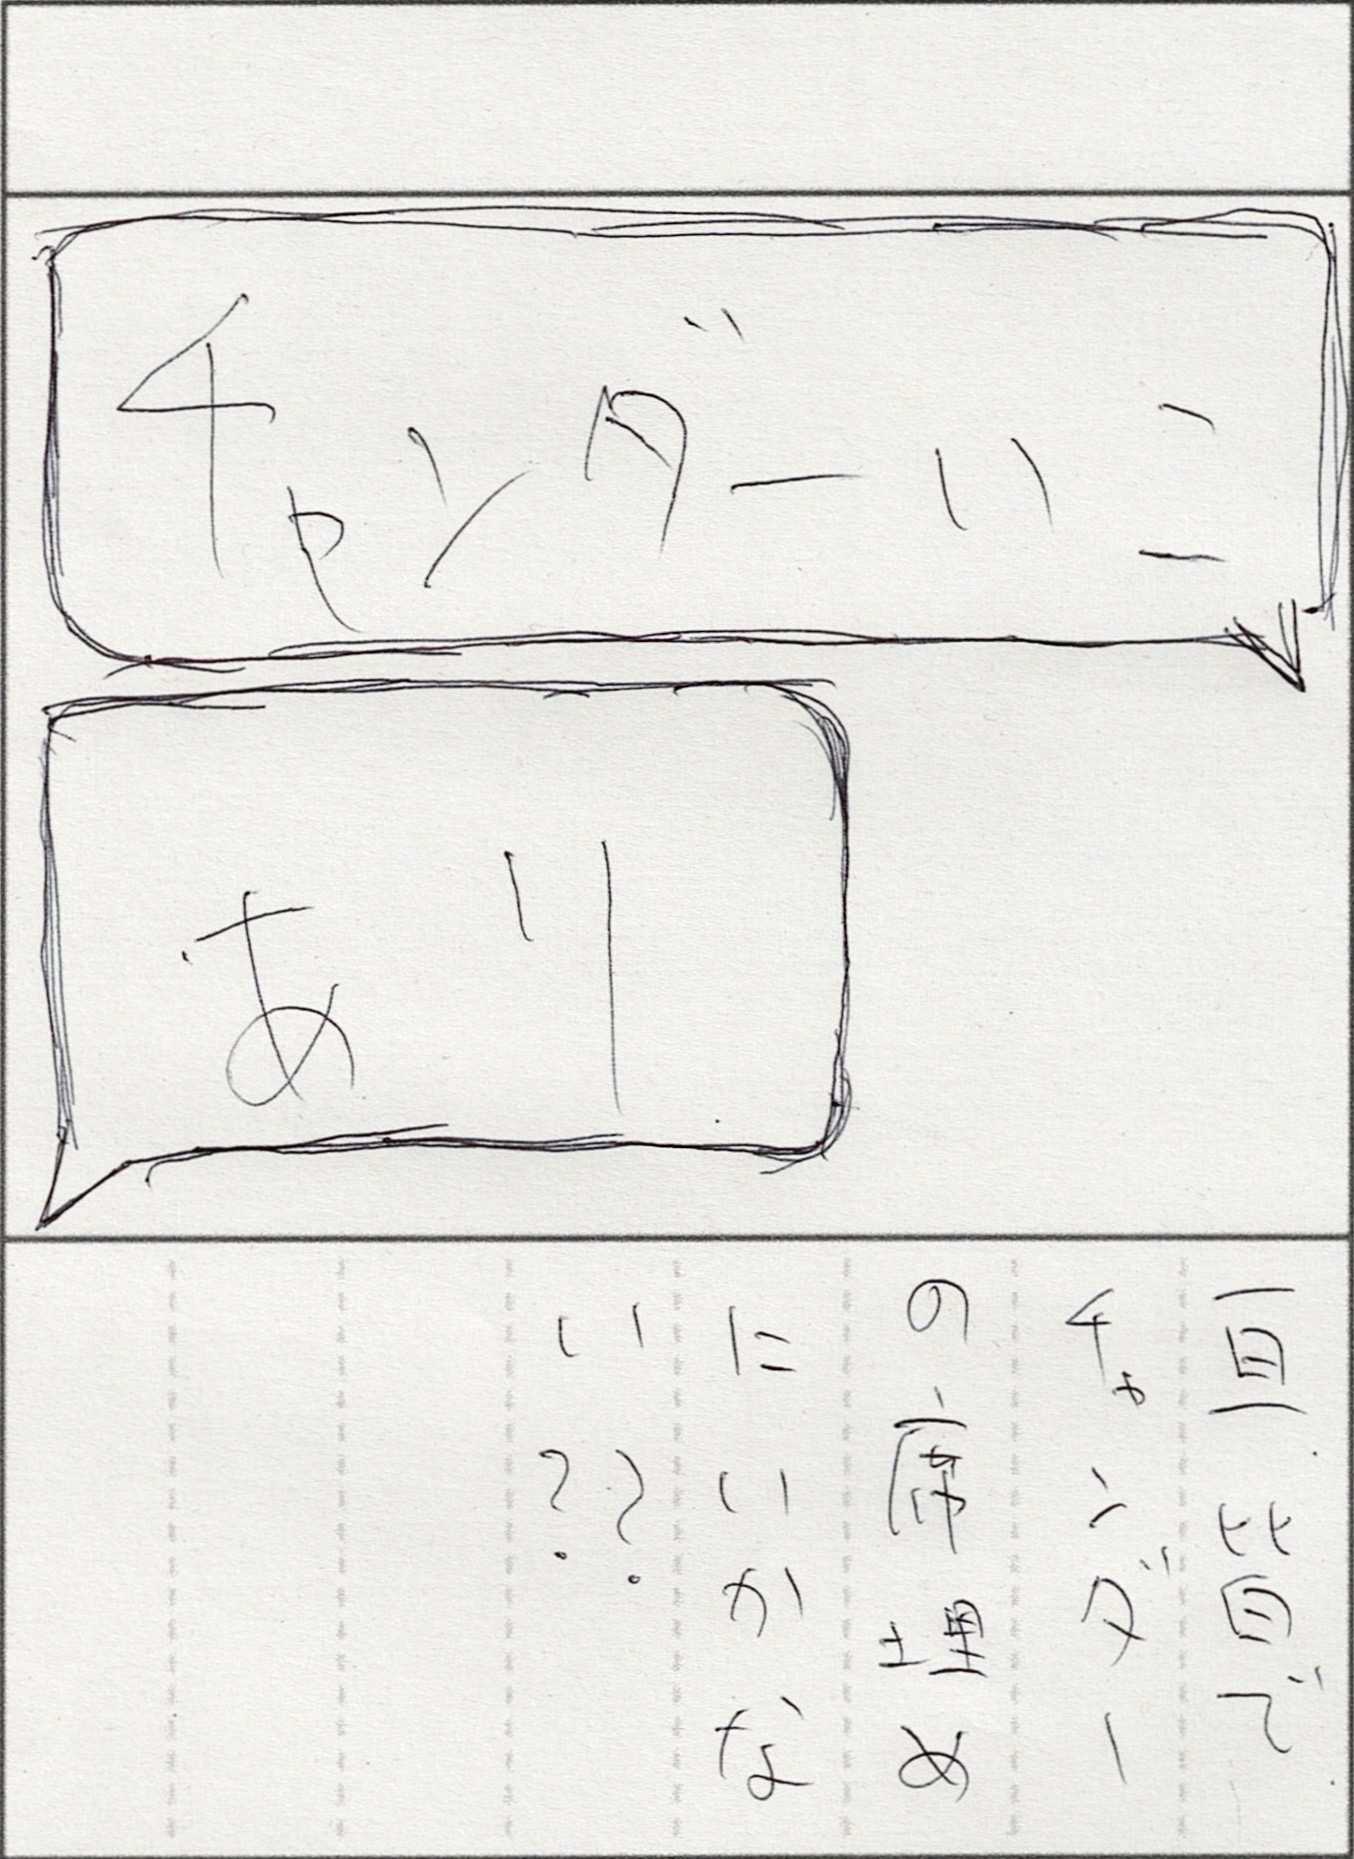 チャンダーいこ
あり
一旦皆で
チャンダー
の席埋め
にいかな
い??